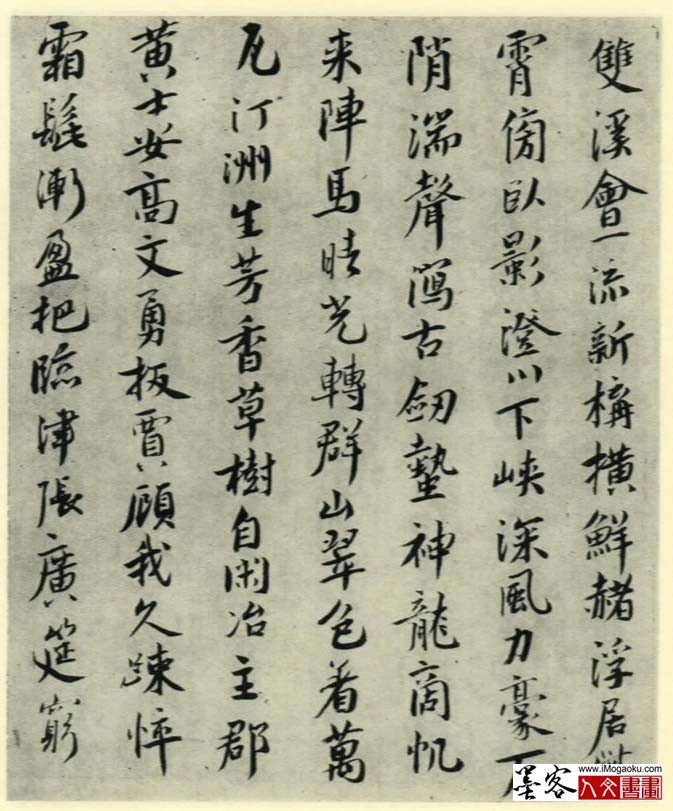 雙溪會一流新構橫鮮赭浮居
霄傍臥影澄川下峽深風力豪
陗湍聲寫古劒蟄神龍商帆
来陣馬晴光轉群山翠色着萬
瓦汀洲生芳香草樹自閑冶主郡
黄士安高文勇扳賈顧我久踈悴
霜髭漸盈把臨津張廣筵窮
墨客
www.iMogaoku.com
人文書畫